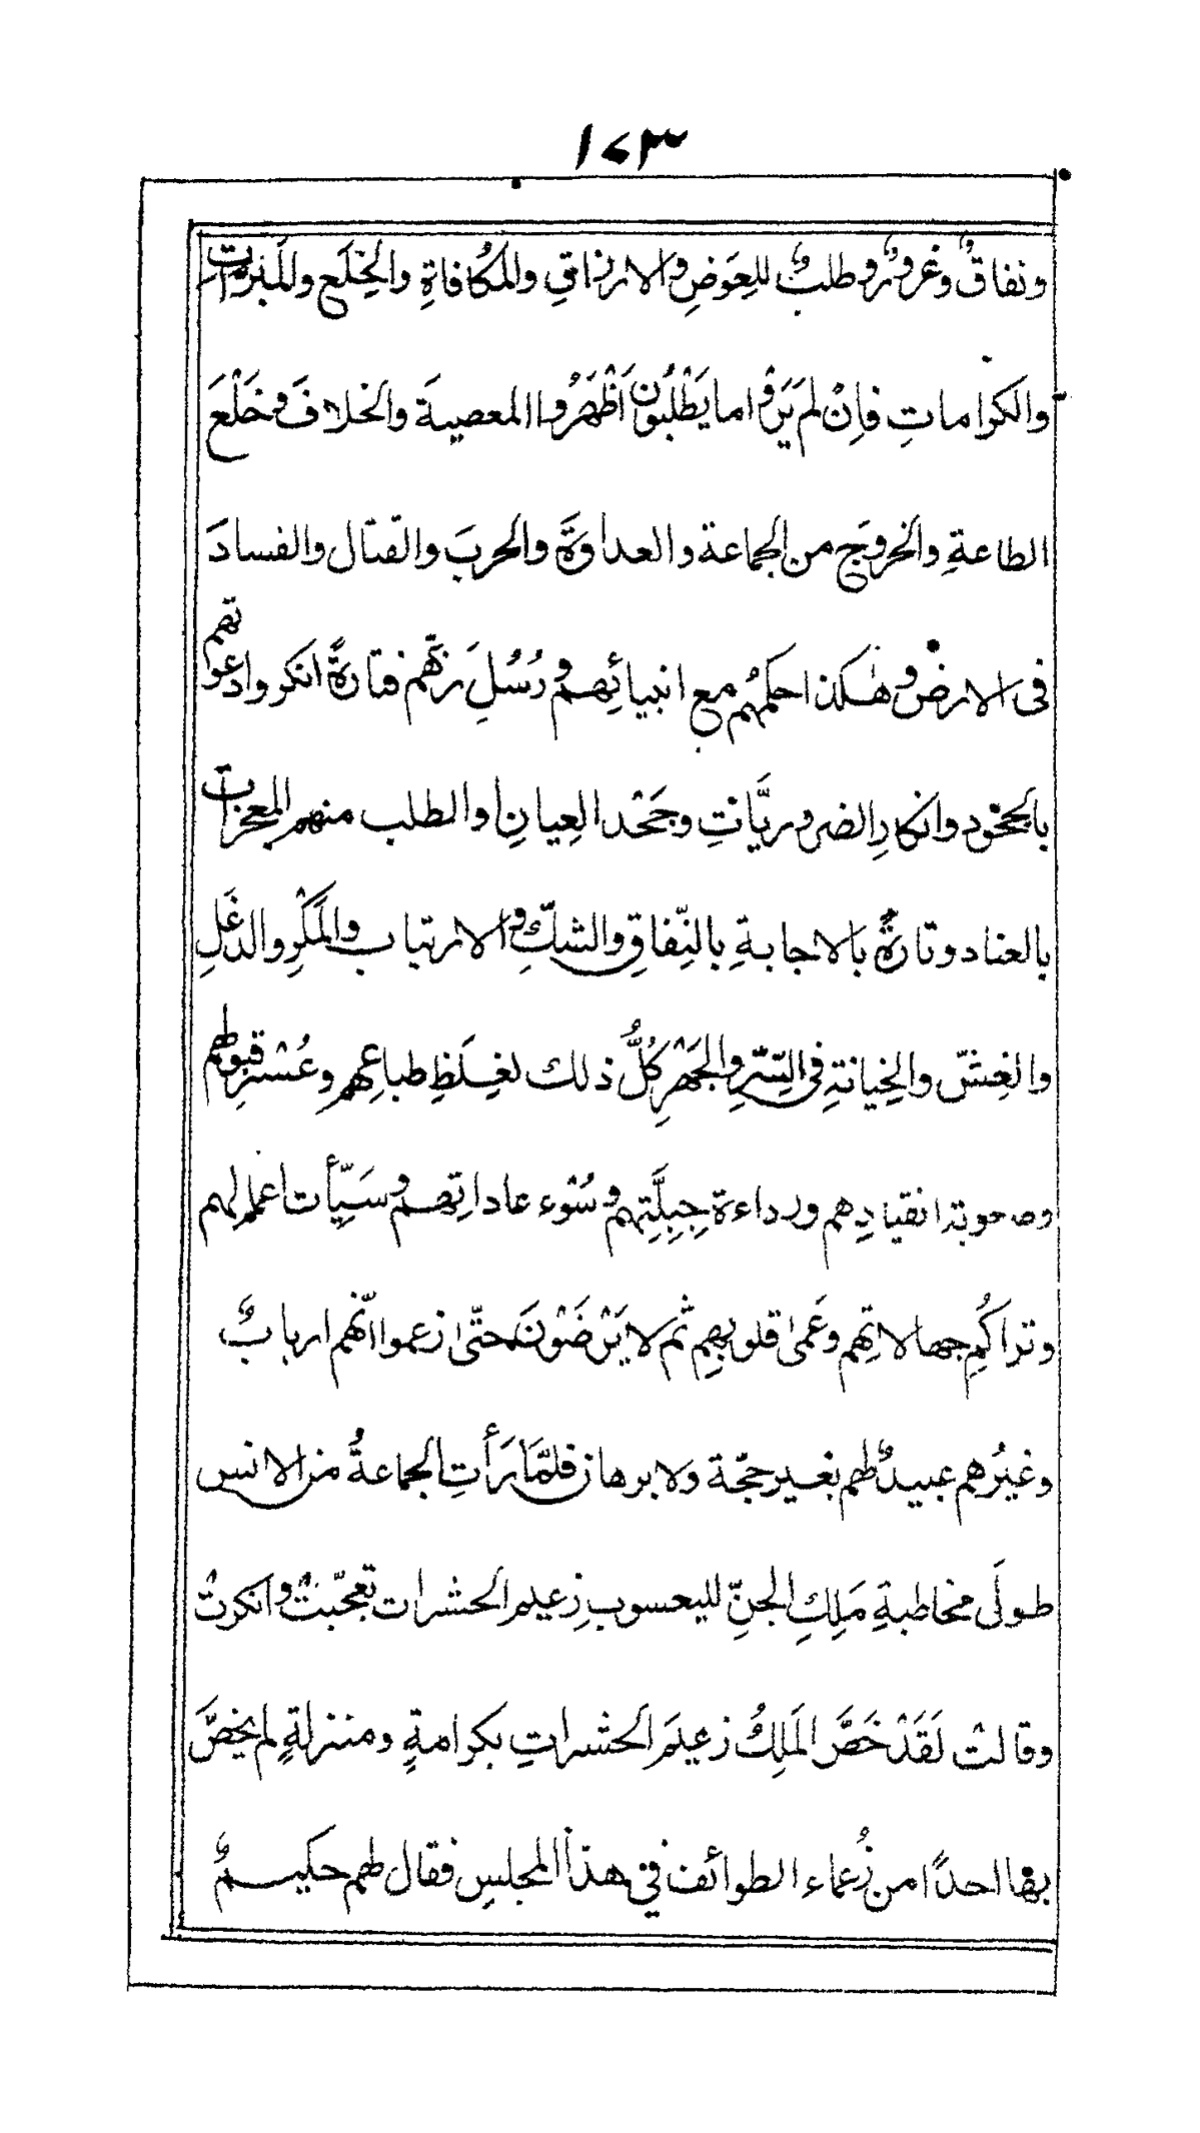 ١٧٣
ونفاقٌ وغرورٌ وطلبٌ للعِوَضِ والارزاقِ والمكافاةِ والخِلَع والمبَرّات
والكرامات فاِنْ لم يَرَوْا ما يَطْلُبون اَظْهَرُوا المعصيةَ والخلافَ وخَلْعَ
الطاعةِ والخروجَ من الجماعة والعداوةَ والحربَ والقتال والفسادَ
فى الارض وهٰكذا حكمُهم مع انبيائِهم ورُسُلِ ربّهم فتارةً انكروا دعوتهم
بالجحود وانكارِ الضروريَّاتِ وجَحْدِ العِيانِ او الطلب منهم المعجزات
بالعناد وتارةً بالاجابةِ بالنِّفاقِ والشكِّ والارتياب والمَكْرِ والدغَلِ
والغِشّ والخِيانةِ فى السِّرِّ والجَهْرِ كُلُّ ذلك لغِلَظِ طباعِهم وعُسْرِ قبولهم
وصعوبة انقيادِهم ورداءة جِبِلَّتِهم وسُوْء عاداتِهم وسَيِّأت اعمٰلهم
وتراكُمِ جهالاتِهم وعَمىٰ قلوبهم ثم لا يَرْضَوْنَ حتّىٰ زعموا انّهم اربابٌ
وغيرُهم عبيدٌ لهم بغير حجّة ولا برهان فلمَّا رَأتِ الجماعةُ من الانس
طولَى مخاطبةِ مَلِكِ الجنّ لليعسوبِ زعيم الحشرات تعجّبتْ وانكرتْ
وقالتْ لَقَدْ خَصَّ المَلِكُ زعيمَ الحشراتِ بكرامةٍ ومنزلةٍ لم يخصَّ
بها احدًا من زُعماء الطوائف فى هذا المجلسِ فقال لهم حكيمٌ